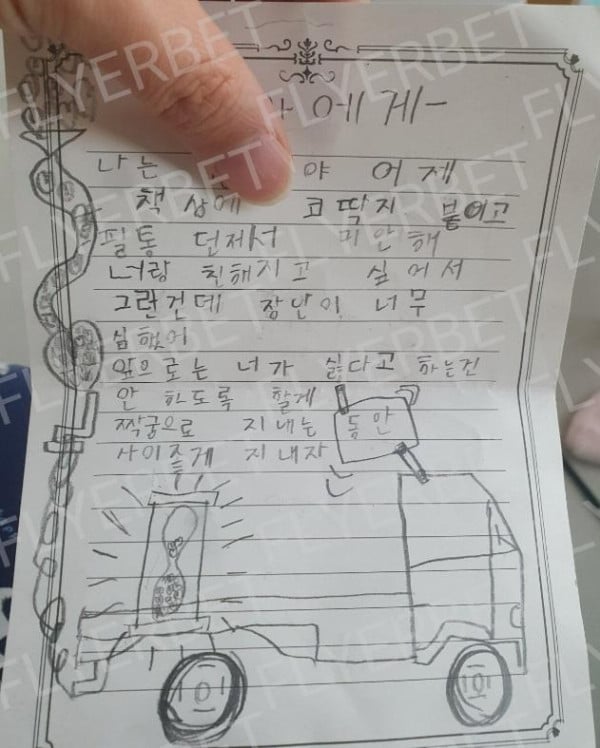 에게-
나는 야 어제
책상에 코딱지 붙이고
필통 던져서 미안해
너랑 친해지고 싶어서
그란건데 장난이 너무
심했어
앞으로는 너가 싫다고 하는건
안 하도록 할게
짝궁으로 지내는 동안
사이좋게 지내자
FLYERBET